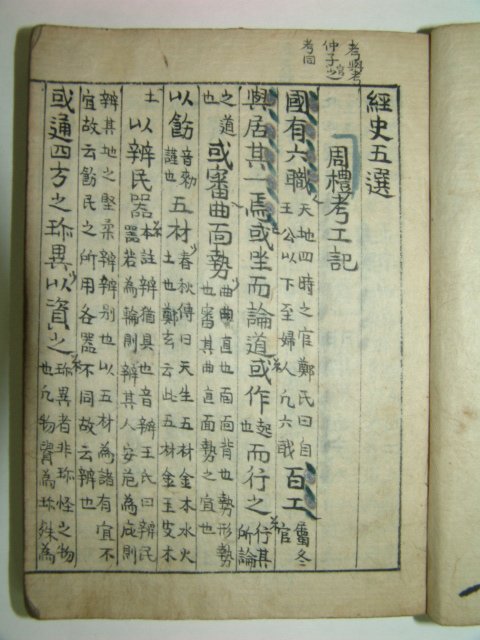 考與考
仲子之官
考同
經史五選
周禮考工記
國有六職天地四時之官鄭氏曰自
王公以下至婦人凡六職百工屬冬
官
與居其一焉或坐而論道或作起
也而行之行其
所論
之道
也或審曲面勢曲曲直也面面背也勢形勢
也審其曲直面勢之宜也
以飭音勑
謹也五材春秋傳曰天生五材金木水火
土也鄭玄云此五材金玉皮木
土以辨民器本註辨猶具也音辨王氏曰辨民
器若為輪則辨其人安危為廬則
辨其地之堅柔辨辨別也以五材為諸有宜不
宜故云飭民之所用各器不同故云辨也
或通四方之珍異以資之珍異者非珍怪之物
也凡物貴為珍殊為